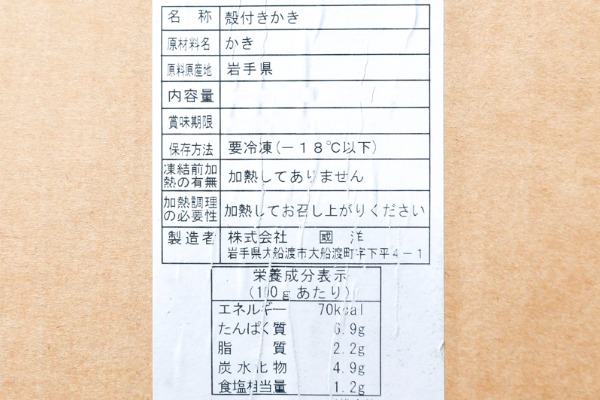 名称 殻付きかき
原材料名 かき
原料原産地 岩手県
内容量
賞味期限
保存方法 要冷凍(－18℃以下)
凍結前加熱の有無 加熱してありません
加熱調理の必要性 加熱してお召し上がりください
製造者 株式会社 國洋
岩手県大船渡市大船渡町字下平4－1
栄養成分表示
(100gあたり)
エネルギー 70kcal
たんぱく質 6.9g
脂質 2.2g
炭水化物 4.9g
食塩相当量 1.2g